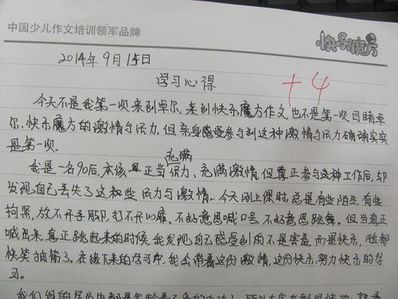 中国少儿作文培训领军品牌
快乐魔方
2014年9月15日
学习心得
+4
今天不是我第一次来到卓尔,来到快乐魔方作文,也不是第一次目睹卓
尔、快乐魔方的激情与活力,但亲身感受参与到这种激情与活力确确实实
是第一次。
充满
我是一名90后,本该是正当活力,充满激情,但真正参与这种工作后,却
发现自己丢失了这种活力与激情。今天刚上课时,总是有些陌生,有些
拘束,放不开手脚,打不开心扉,不好意思喊口号,不好意思跳舞。但当真正
喊出来,真正跳起来的时候,我发现自己感受到的不是害羞,而是快乐,脸都
快笑抽筋了。在接下来的学习中,我会带着这份激情,这份快乐,努力快乐的学
习。